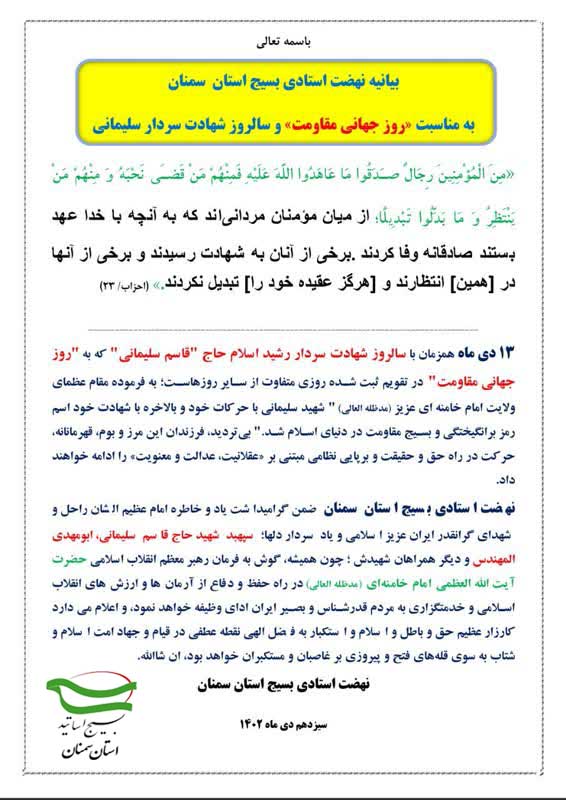 باسمه تعالی
بیانیه نهضت استادی بسیج استان سمنان
به مناسبت «روز جهانی مقاومت» و سالروز شهادت سردار سلیمانی
«مِنَ الْمُؤْمِنِینَ رِجَالٌ صَدَقُوا مَا عَاهَدُوا اللَّهَ عَلَیْهِ فَمِنْهُمْ مَنْ قَضَی نَحْبَهُ وَ مِنْهُمْ مَنْ
یَنْتَظِرُ وَ مَا بَدَّلُوا تَبْدِیلًا؛ از میان مؤمنان مردانی‌اند که به آنچه با خدا عهد
بستند صادقانه وفا کردند .برخی از آنان به شهادت رسیدند و برخی از آنها
در [همین] انتظارند و [هرگز عقیده خود را] تبدیل نکردند.» (احزاب/ ۲۳)
۱۳ دی ماه همزمان با سالروز شهادت سردار رشید اسلام حاج "قاسم سلیمانی" که به "روز
جهانی مقاومت" در تقویم ثبت شده روزی متفاوت از سایر روزهاست؛ به فرموده مقام عظمای
ولایت امام خامنه ای عزیز (مدظله العالی) " شهید سلیمانی با حرکات خود و بالاخره با شهادت خود اسم
رمز برانگیختگی و بسیج مقاومت در دنیای اسلام شد." بی‌تردید، فرزندان این مرز و بوم، قهرمانانه،
حرکت در راه حق و حقیقت و برپایی نظامی مبتنی بر «عقلانیت، عدالت و معنویت» را ادامه خواهند
داد.
نهضت استادی بسیج استان سمنان ضمن گرامیداشت یاد و خاطره امام عظیم الشان راحل و
شهدای گرانقدر ایران عزیز اسلامی و یاد سردار دلها؛ سپهبد شهید حاج قاسم سلیمانی، ابومهدی
المهندس و دیگر همراهان شهیدش ؛ چون همیشه، گوش به فرمان رهبر معظم انقلاب اسلامی حضرت
آیت الله العظمی امام خامنه‌ای (مدظله العالی) در راه حفظ و دفاع از آرمان ها و ارزش های انقلاب
اسلامی و خدمتگزاری به مردم قدرشناس و بصیر ایران ادای وظیفه خواهد نمود، و اعلام می دارد
کارزار عظیم حق و باطل و اسلام و استکبار به فضل الهی نقطه عطفی در قیام و جهاد امت اسلام و
شتاب به سوی قله‌های فتح و پیروزی بر غاصبان و مستکبران خواهد بود، ان شاالله.
نهضت استادی بسیج استان سمنان
سیزدهم دی ماه ۱۴۰۲
بسیج اساتید
استان سمنان